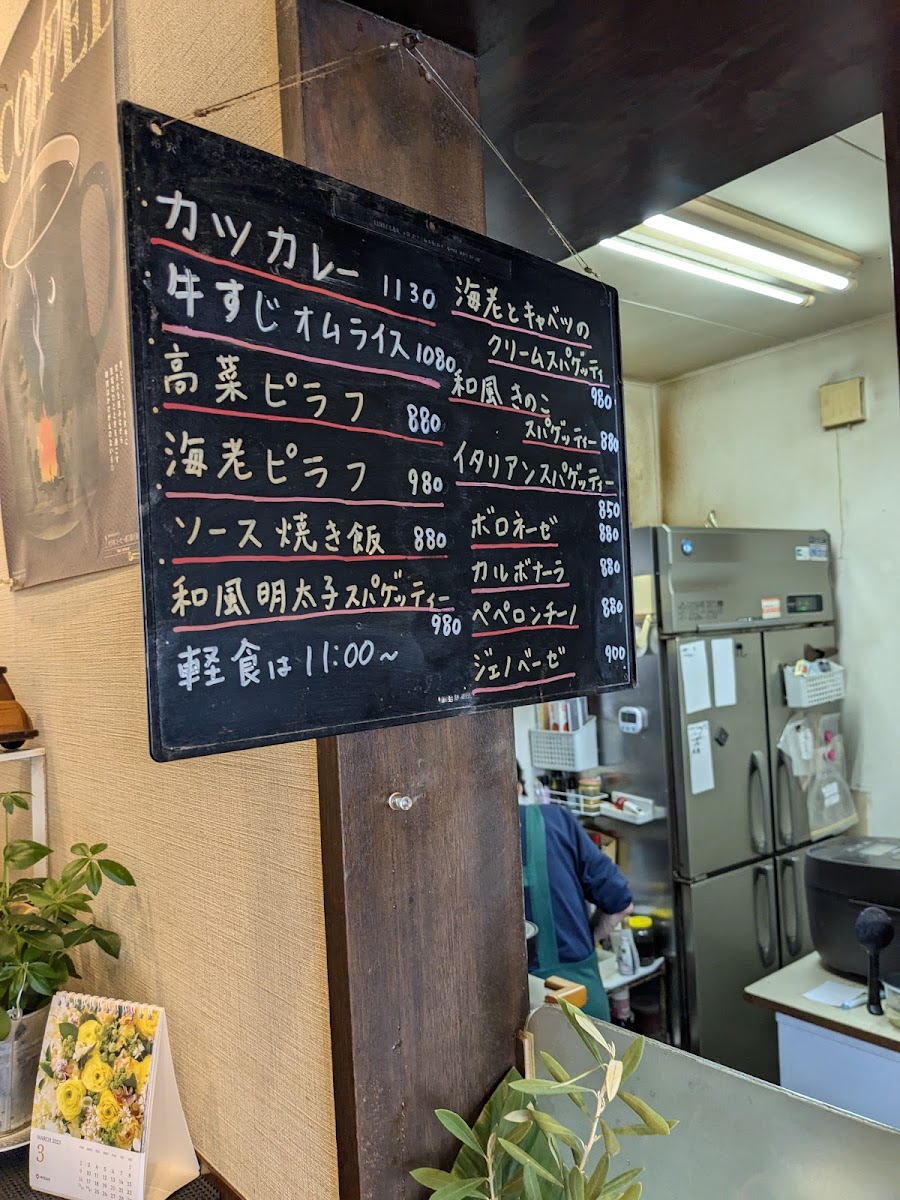 COFFEE
カツカレー 1130
牛すじオムライス 1080
高菜ピラフ 880
海老ピラフ 980
ソース焼き飯 880
和風明太子スパゲッティー
980
軽食は11:00〜
海老とキャベツの
クリームスパゲッティ
980
和風きのこ
スパゲッティー 880
イタリアンスパゲッティー
850
ボロネーゼ 880
カルボナーラ 880
ペペロンチーノ 880
ジェノベーゼ 900
MARCH 2023
3